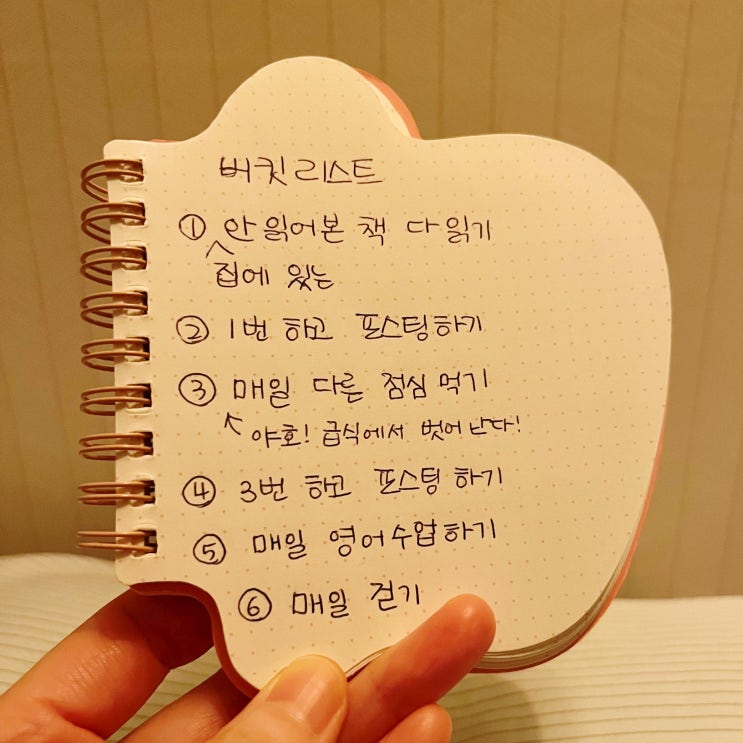 버킷리스트
① 안 읽어본 책 다 읽기
집에 있는
② 1번 하고 포스팅하기
③ 매일 다른 점심 먹기
야호! 급식에서 벗어난다!
④ 3번 하고 포스팅 하기
⑤ 매일 영어수업하기
⑥ 매일 걷기